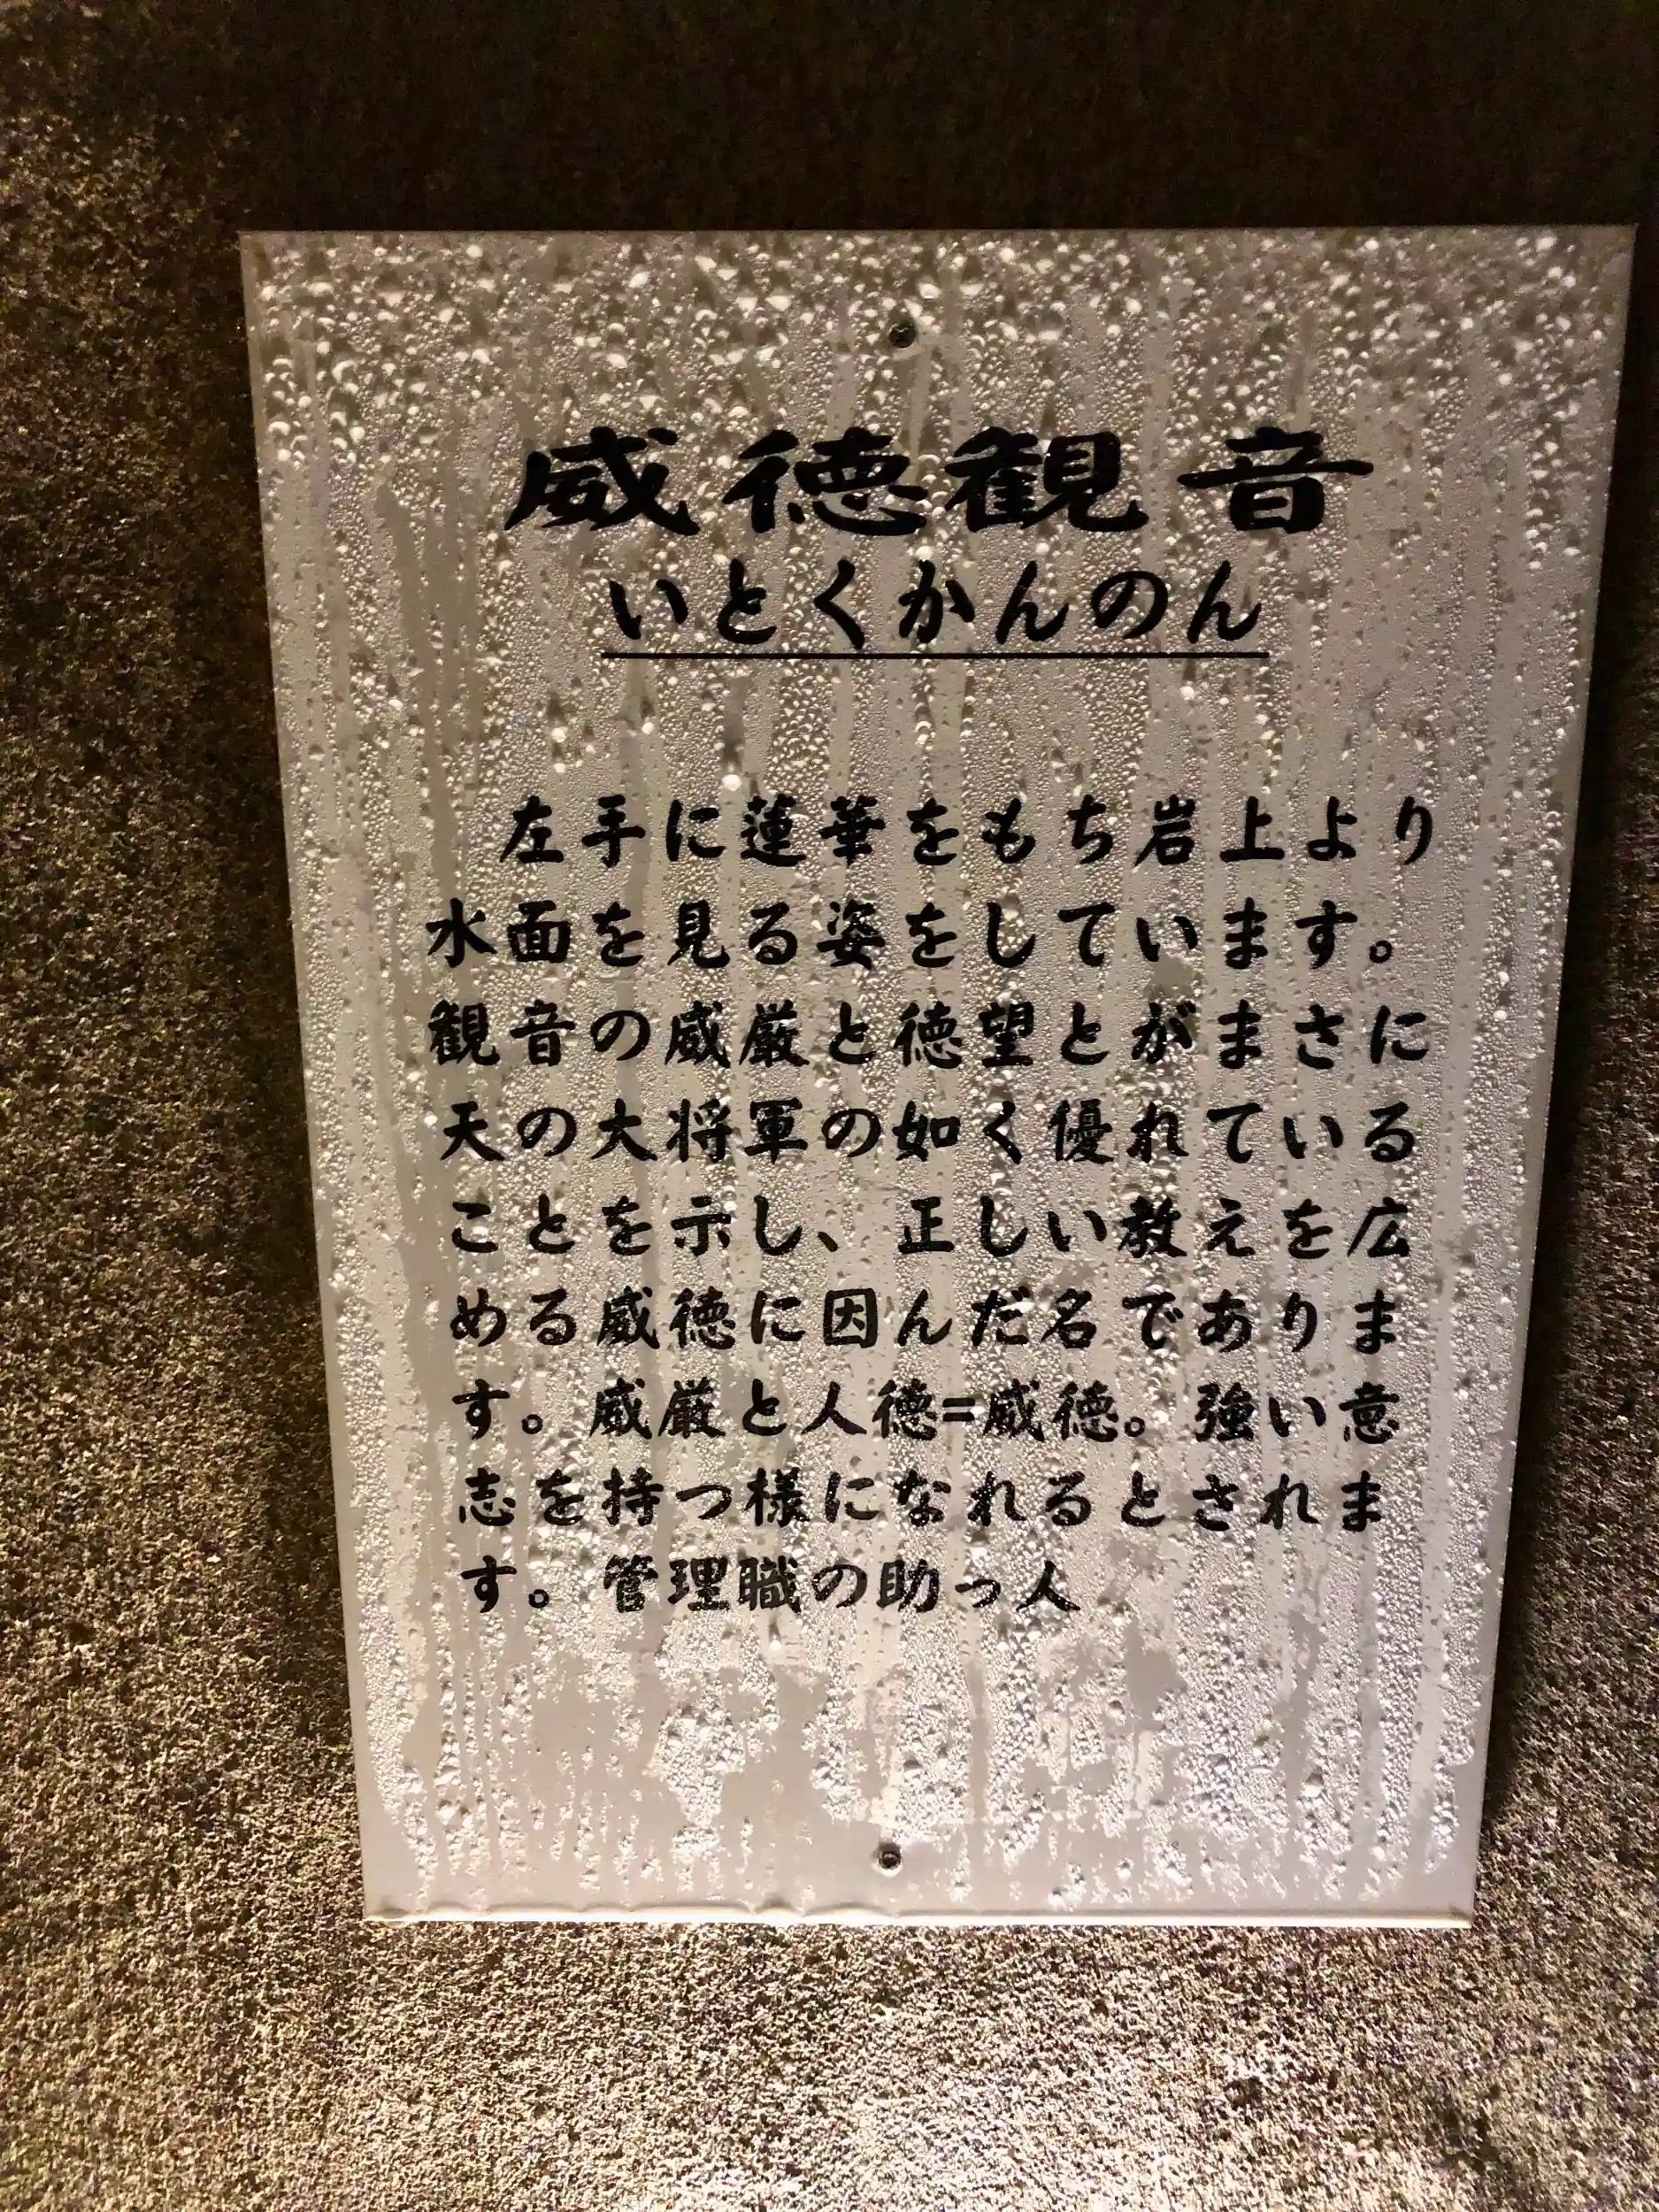 威徳観音
いとくかんのん
左手に蓮華をもち岩上より
水面を見る姿をしています。
観音の威厳と徳望とがまさに
天の大将軍の如く優れている
ことを示し、正しい教えを広
める威徳に因んだ名でありま
す。威厳と人徳=威徳。強い意
志を持つ様になれるとされま
す。管理職の助っ人